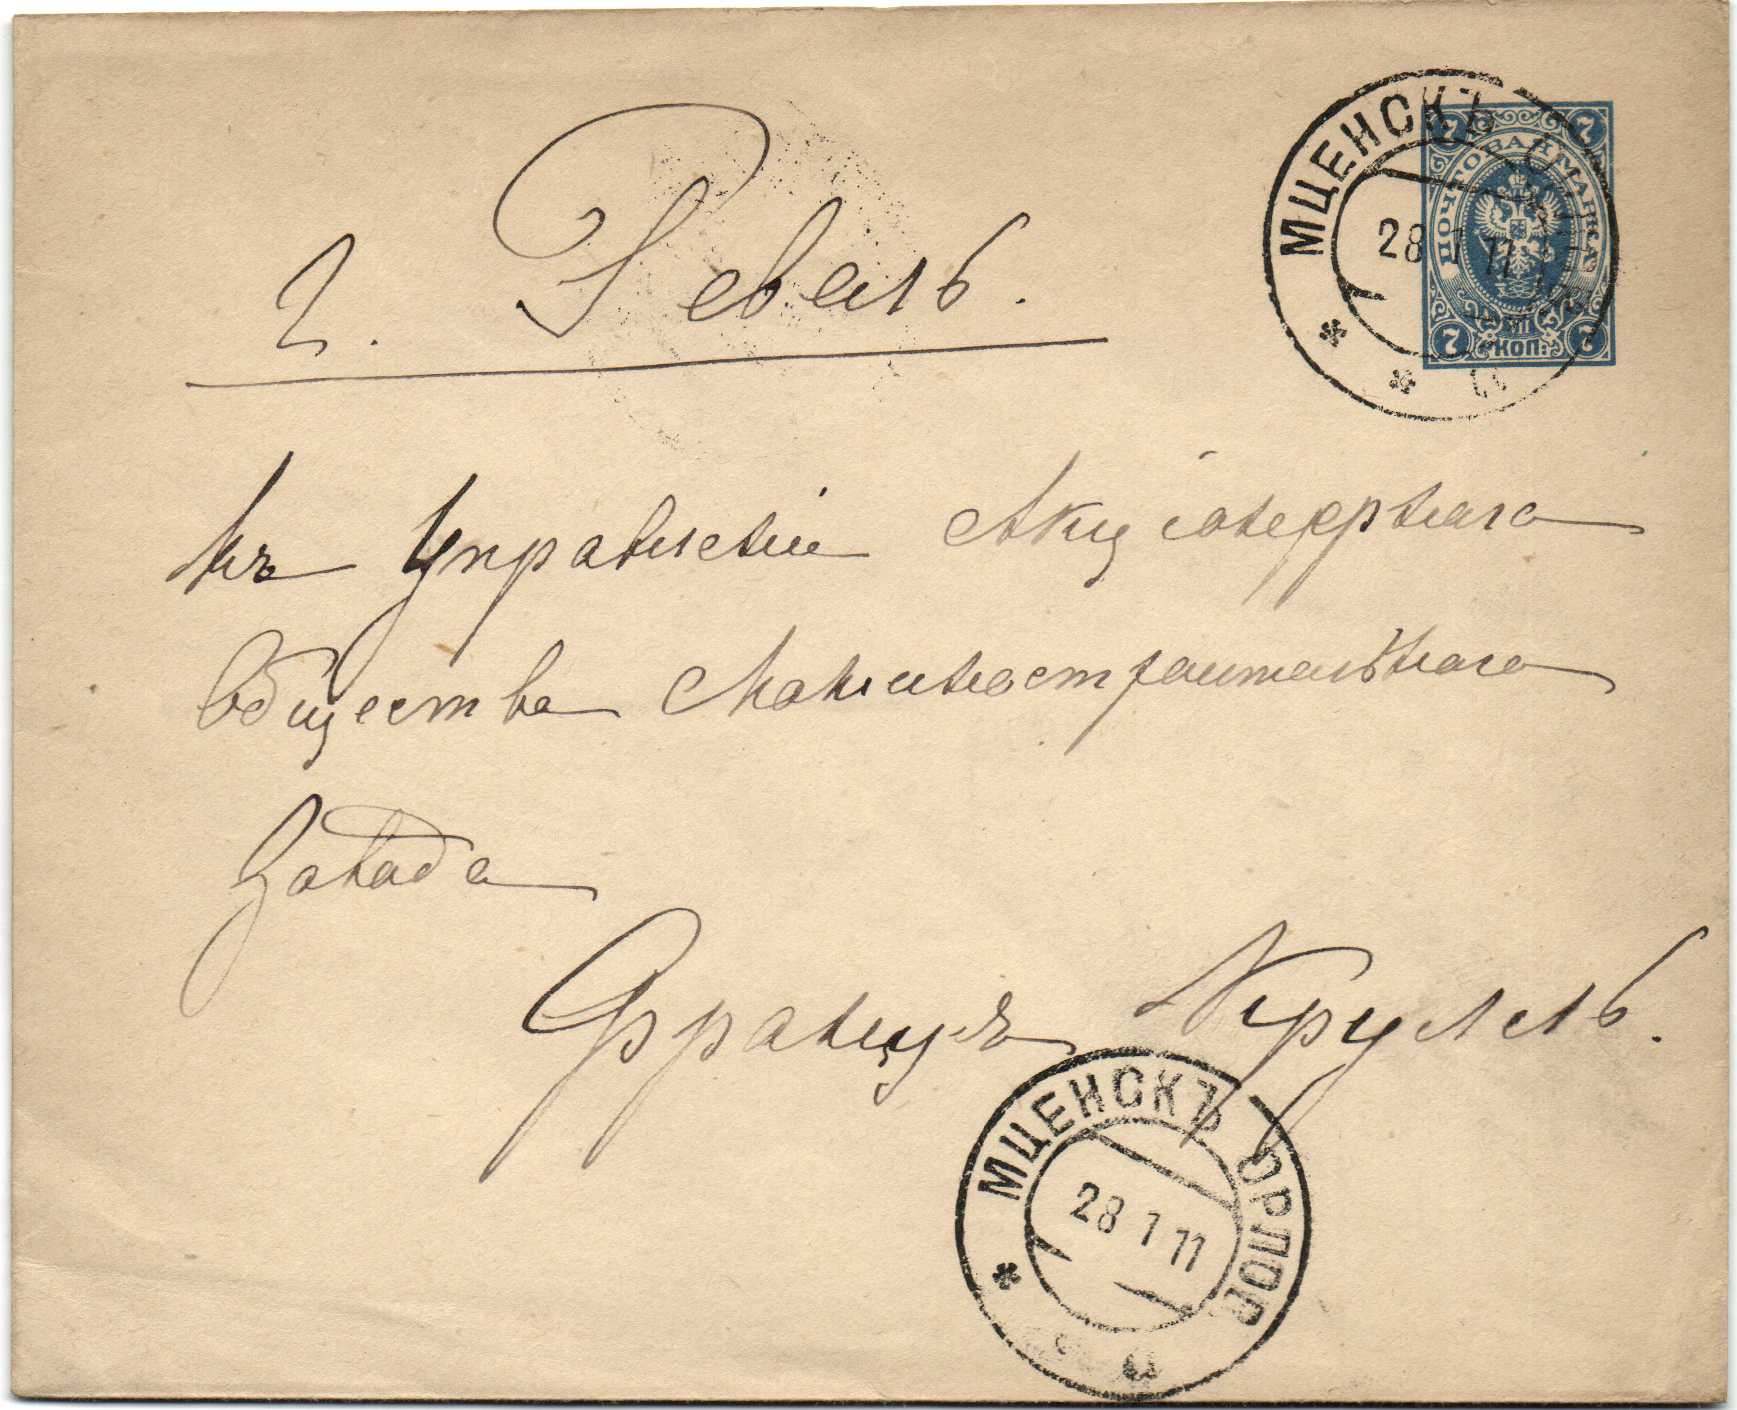 МЦЕНСКЪ
28 1 11
7 7
ПОЧТОВАЯ МАРКА
7 КОП. 7
г. Ревель.
Въ Управленіе Акціонернаго
Общества Машиностроительнаго
Завода
Францъ Крулль.
МЦЕНСКЪ ОРЛОВ
28 1 11